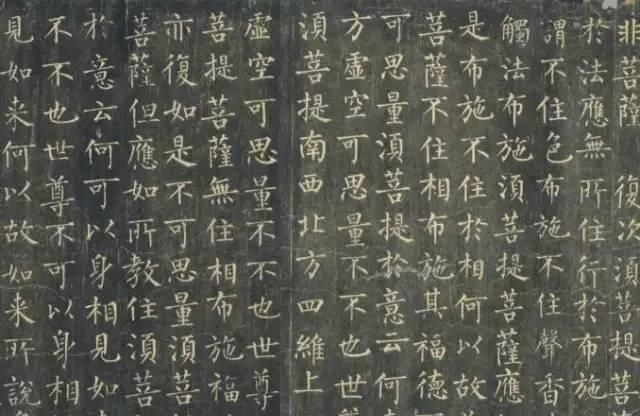 非菩薩 復次湏菩提菩
於法應無所住行於布施
謂不住色布施不住聲香
觸法布施湏菩提菩薩應
是布施不住於相何以故
菩薩不住相布施其福德
可思量湏菩提於意云何
方虛空可思量不不也世
湏菩提南西北方四維上
虛空可思量不不也世尊
菩提菩薩無住相布施福
亦復如是不可思量湏菩
菩薩但應如所教住湏菩
於意云何可以身相見如
不不也世尊不可以身相
見如来何以故如来所說